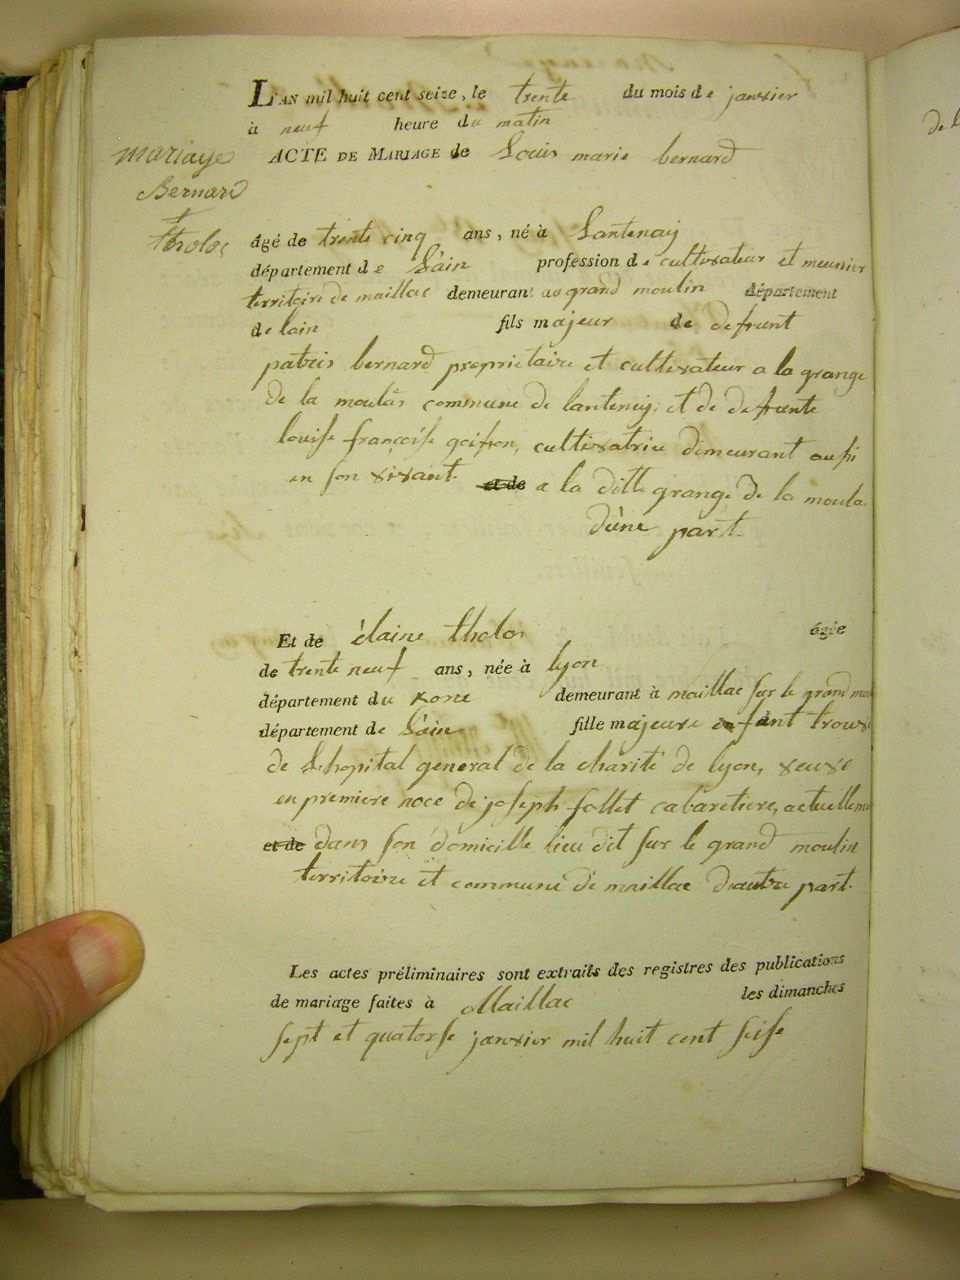 L'AN mil huit cent seize, le trente du mois de janvier
à neuf heure du matin
mariage
ACTE DE MARIAGE de Louis marie bernard
Bernard
&
tholos
âgé de trente cinq ans, né à Lantenay
département de L'ain profession de cultivateur et meunier
territoire de maillac demeurant au grand moulin département
de lain fils majeur de defunt
patris bernard proprietaire et cultivateur a la grange
de la moulas commune de lantenay, et de defunte
louise françoise goifon, cultivatrice demeurant aussi
en son vivant et de a la ditte grange de la moula
d'une part
Et de élaine tholos âgée
de trente neuf ans, née à lyon
département du rone demeurant à maillac sur le grand mou
département de L'ain fille majeure enfant trouvé
de Lhopital general de la charité de lyon, veuve
en premiere noce de joseph follet cabaretiere, actuelleme
et de dans son domicille lieu dit sur le grand moulin
territoire et commune de maillac d'autre part.
Les actes préliminaires sont extraits des registres des publications
de mariage faites à Maillac les dimanches
sept et quatorse janvier mil huit cent seise
de l